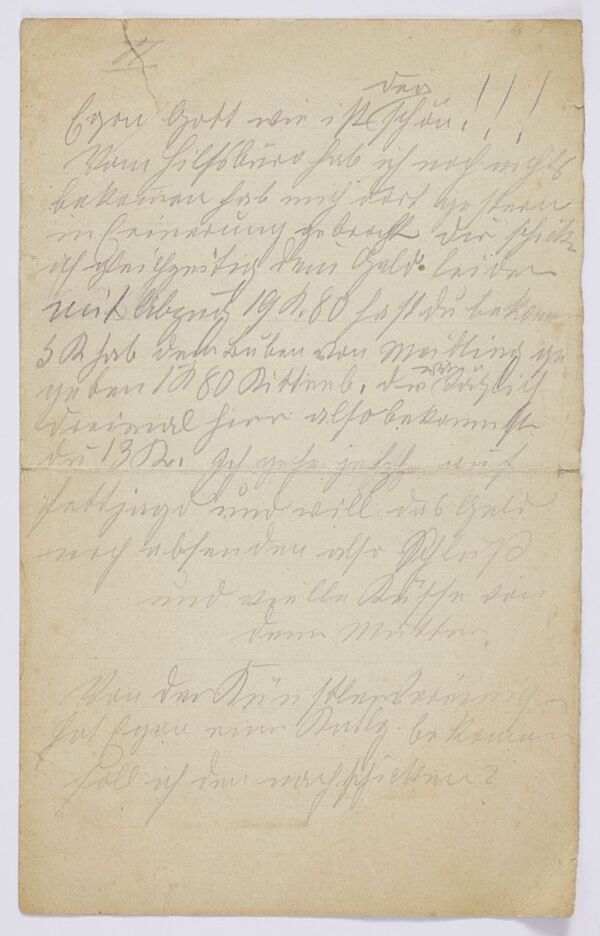 der
Egon Gott wie ist schön!!!
Vom Hilfsbüro hab ich noch nichts
bekomen hab mich dort gestern
in Erinerung gebracht dir schick
ich gleichzeitig dein Geld. leider
mit Abzug 19 K. 80 hast du bekomen
5 K hab dem Buben von Meidling ge
geben 1 K 80 die täglich
dreimal her also bekommst
du 13 K. Ich gehe jetzt auf
Fettjagd und will das Geld
noch absenden also Schluß
und vielle Küsse von
dein Mutter.
Von der Künstlervereinung
hat Egon eine Katlg. bekomen
soll ich den nachschicken?